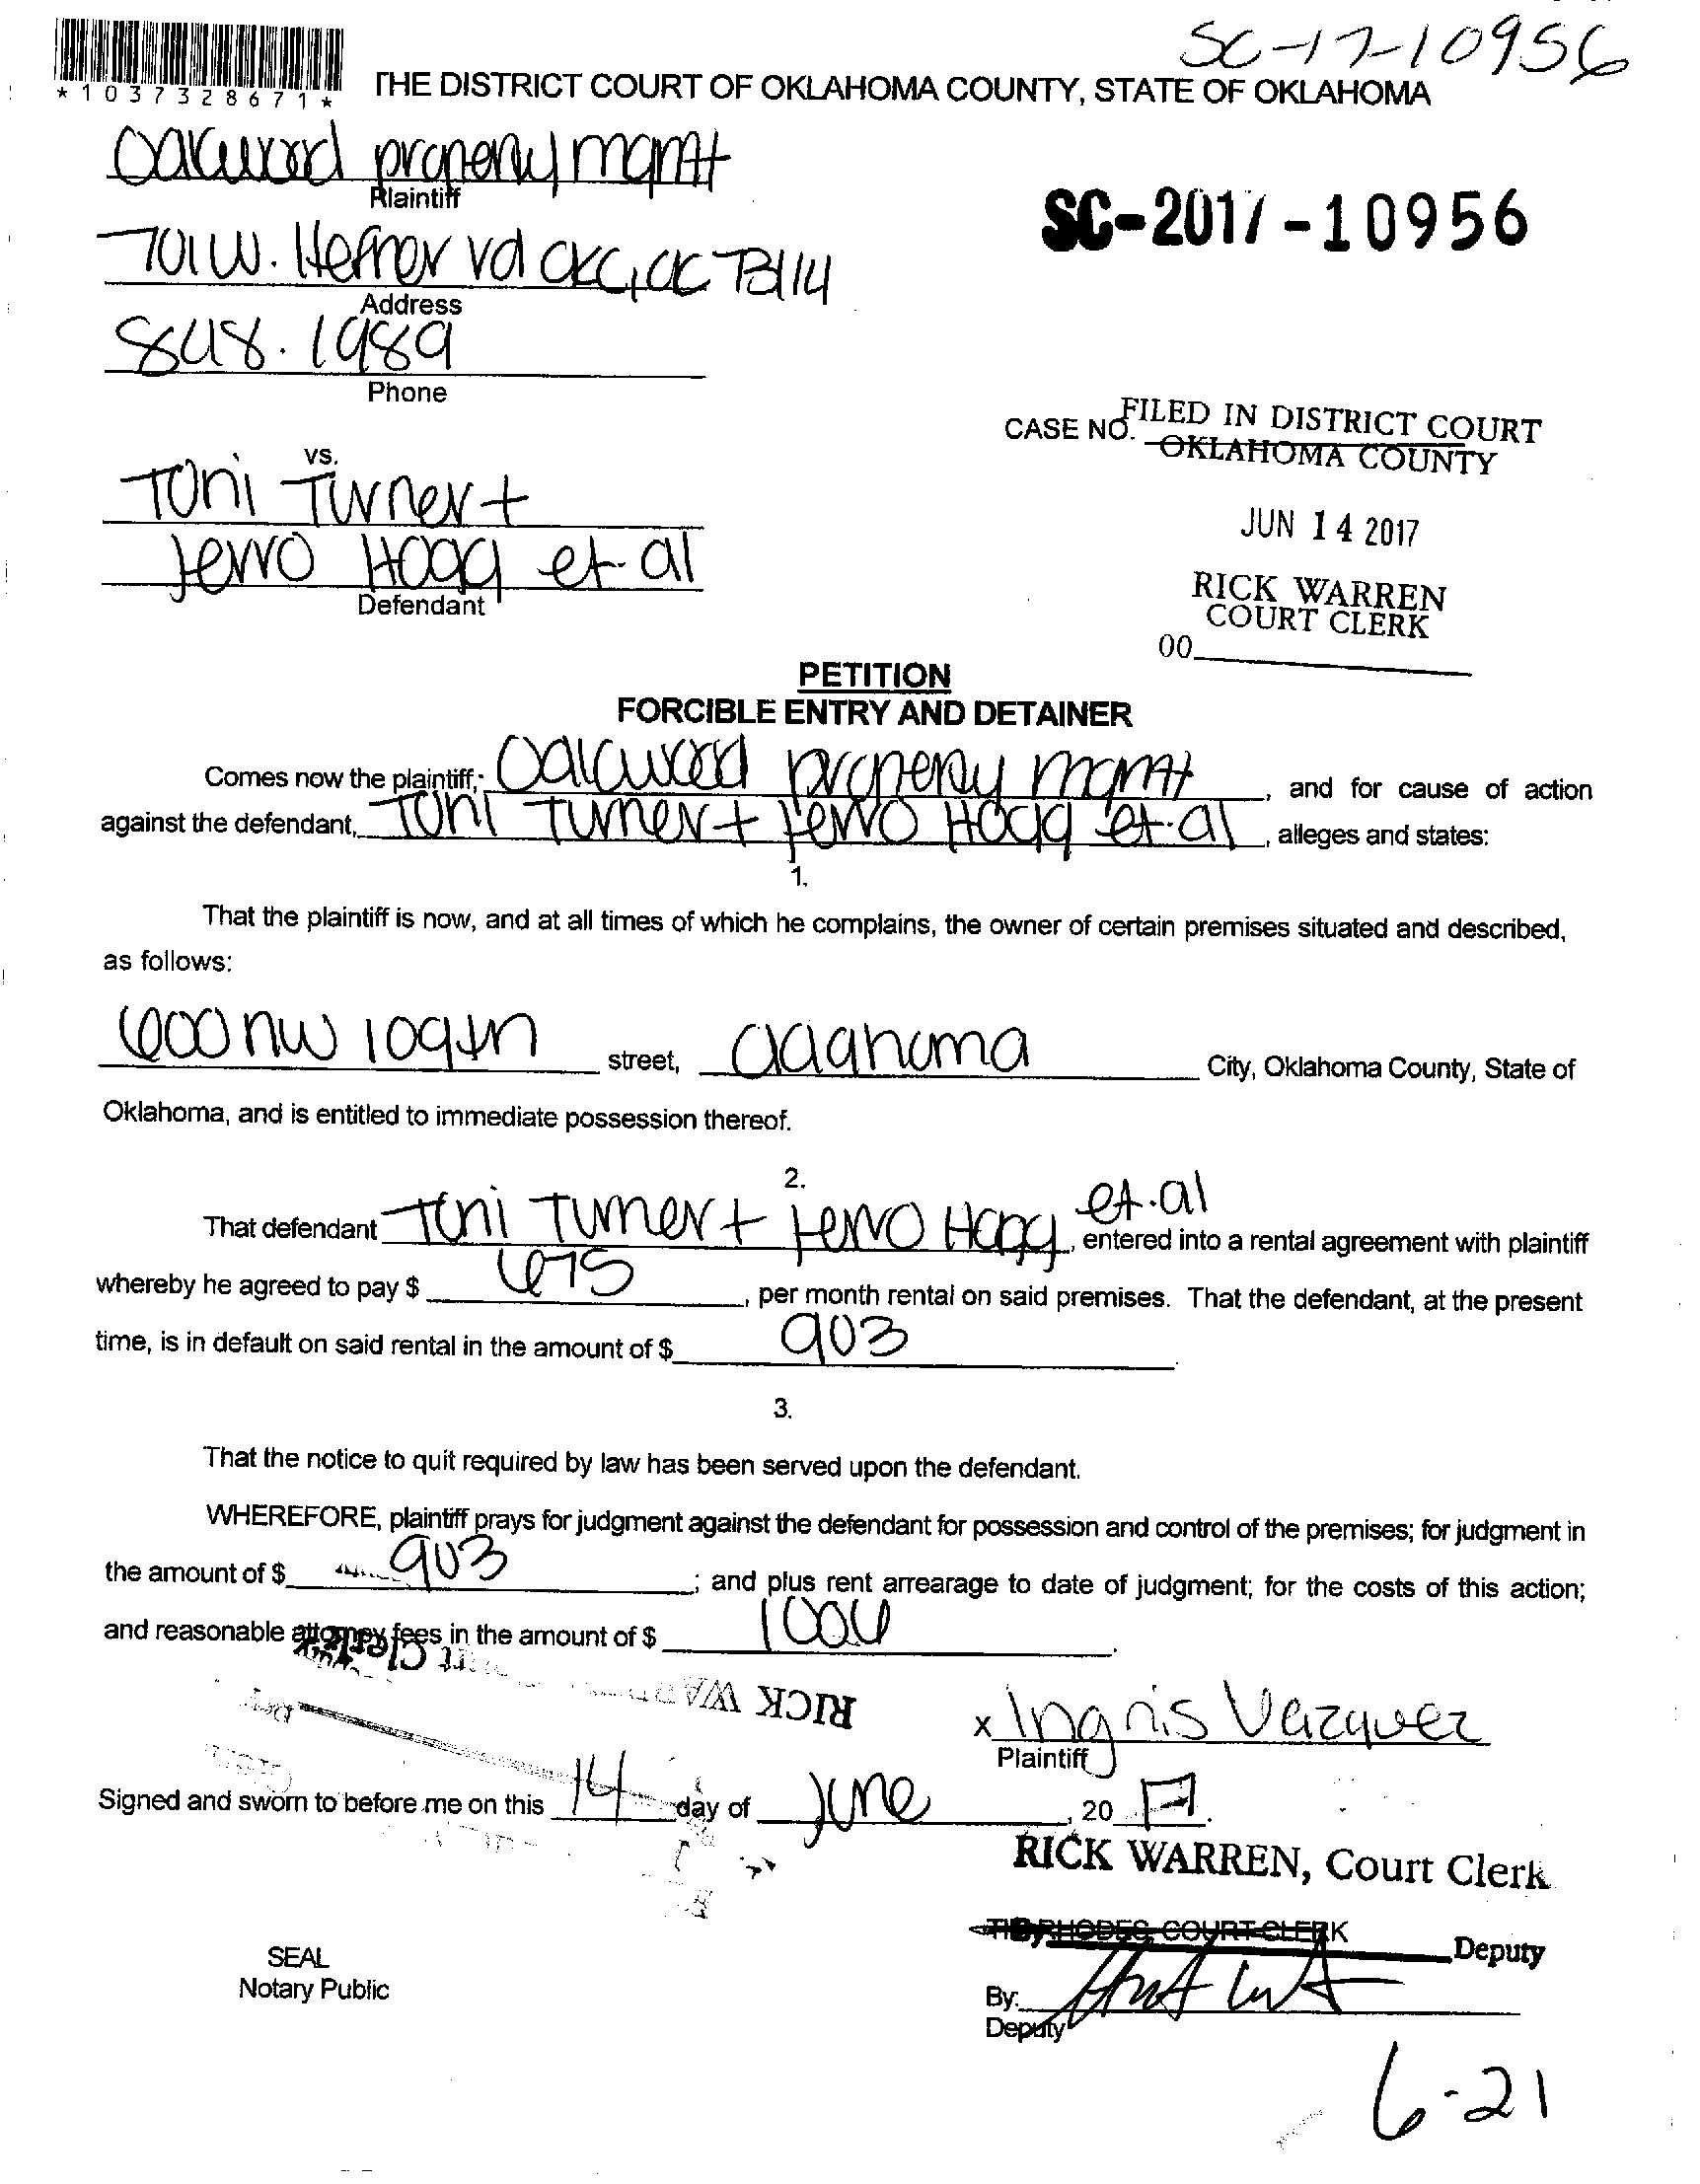 SC-17-10956
*1037328671*
THE DISTRICT COURT OF OKLAHOMA COUNTY, STATE OF OKLAHOMA
Oakwood property mgmt
Plaintiff
SC-2017-10956
701 W. Hefner rd OKC, OK 73114
Address
848.1989
Phone
CASE NO.
FILED IN DISTRICT COURT
OKLAHOMA COUNTY
vs.
Toni Turner +
JUN 14 2017
Jerro Hogg et al
Defendant
RICK WARREN
COURT CLERK
00
PETITION
FORCIBLE ENTRY AND DETAINER
Comes now the plaintiff, Oakwood property mgmt, and for cause of action
against the defendant, Toni Turner + Jerro Hogg et. al, alleges and states:
1.
That the plaintiff is now, and at all times of which he complains, the owner of certain premises situated and described,
as follows:
600 nw 109th street, Oklahoma City, Oklahoma County, State of
Oklahoma, and is entitled to immediate possession thereof.
2.
That defendant Toni Turner + Jerro Hogg et.al, entered into a rental agreement with plaintiff
whereby he agreed to pay $ 675, per month rental on said premises. That the defendant, at the present
time, is in default on said rental in the amount of $ 903
3.
That the notice to quit required by law has been served upon the defendant.
WHEREFORE, plaintiff prays for judgment against the defendant for possession and control of the premises; for judgment in
the amount of $ 903; and plus rent arrearage to date of judgment; for the costs of this action;
and reasonable attorney fees in the amount of $.
RICK WARREN
x Ingris Vazquez
Plaintiff
Signed and sworn to before me on this 14 day of June, 20 17.
RICK WARREN, Court Clerk
TIM RHODES, COURT CLERK
By Deputy
SEAL
Notary Public
By:
Deputy
6-21